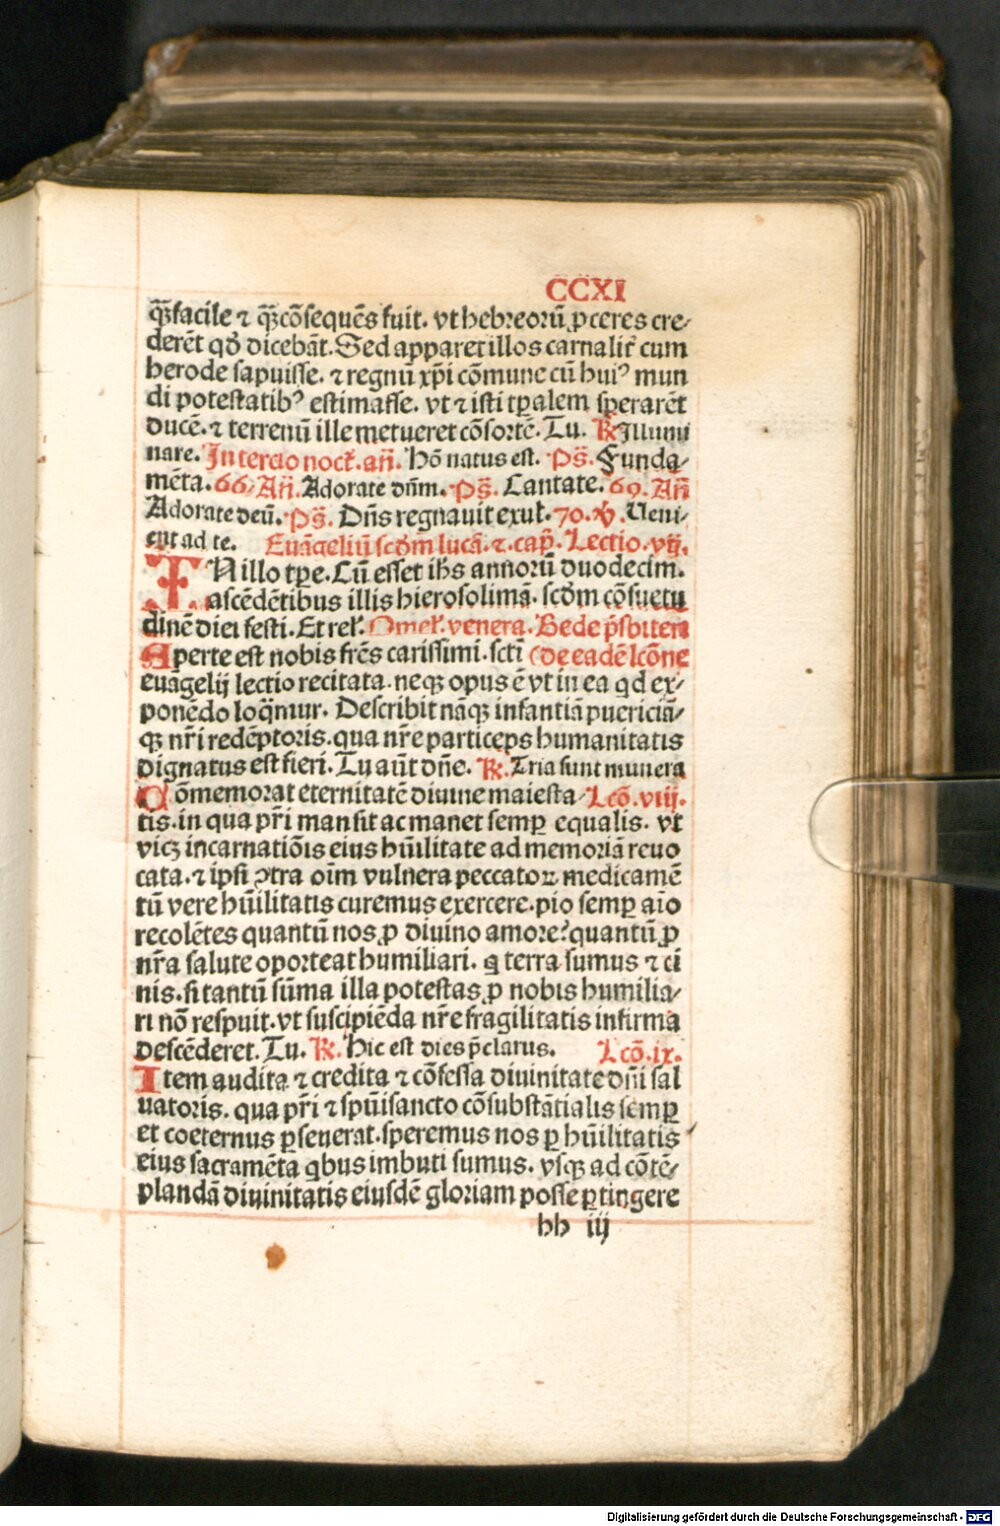 CCXI
qᷓꝫ facile ⁊ qᷓꝫ cōsequēs fuit. vt hebreorū ꝓceres cre-
derēt qđ dicebāt. Sed apparet illos carnalit̄ cum
herode sapuisse. ⁊ regnū xp̄i cōmune cū huiꝰ mun
di potestatibꝰ estimasse. vt ⁊ isti tꝑalem sperarēt
ducē. ⁊ terrenū ille metueret cōsortē. Tu. ℟ Illumi
nare. In tercio noct̄. an̄. Hō natus est. Ps̄. Funda-
mēta. 66. An̄. Adorate dn̄m. Ps̄. Cantate. 69. An̄
Adorate deū. Ps̄. Dn̄s regnauit exul̄. 70. ℣. Ueni-
ent ad te. Euāgeliū scđm lucā. 2. cap̄. Lectio. vij.
IN illo tꝑe. Cū esset ih̄s annorū duodecim.
ascēdētibus illis hierosolimā. scđm cōsuetu
dinē diei festi. Et rel̄. Omel̄. venera. Bede p̄sbiteri
Aperte est nobis fr̄es carissimi. sc̄ti (de eadē lcōne
euāgelij lectio recitata. neqꝫ opus ē vt in ea qd ex-
ponēdo loq̄mur. Describit nāqꝫ infantiā puericiā-
qꝫ nr̄i redēptoris. qua nr̄e particeps humanitatis
dignatus est fieri. Tu aūt dn̄e. ℟. Tria sunt munera
Cōmemorat eternitatē diuine maiesta- Lcō. viij.
tis. in qua pr̄i mansit ac manet semꝑ equalis. vt
vicꝫ incarnatiōis eius hūilitate ad memoriā reuo
cata. ⁊ ipsi ↄtra oīm vulnera peccatoꝝ medicamē
tū vere hūilitatis curemus exercere. pio semꝑ aīo
recolētes quantū nos ꝓ diuino amore? quantū ꝓ
nr̄a salute oporteat humiliari. q terra sumus ⁊ ci
nis. si tantū sūma illa potestas ꝓ nobis humilia-
ri nō respuit. vt suscipiēda nr̄e fragilitatis infirma
descēderet. Tu. ℟. Hic est dies p̄clarus. Lcō. ix.
Item audita ⁊ credita ⁊ cōfessa diuinitate dn̄i sal
uatoris. qua pr̄i ⁊ spūisancto cōsubstātialis semꝑ
et coeternus ꝑseuerat. speremus nos ꝑ hūilitatis
eius sacramēta qbus imbuti sumus. vsqꝫ ad cōtē-
plandā diuinitatis eiusdē gloriam posse ꝑtingere
hh iij
Digitalisierung gefördert durch die Deutsche Forschungsgemeinschaft - DFG